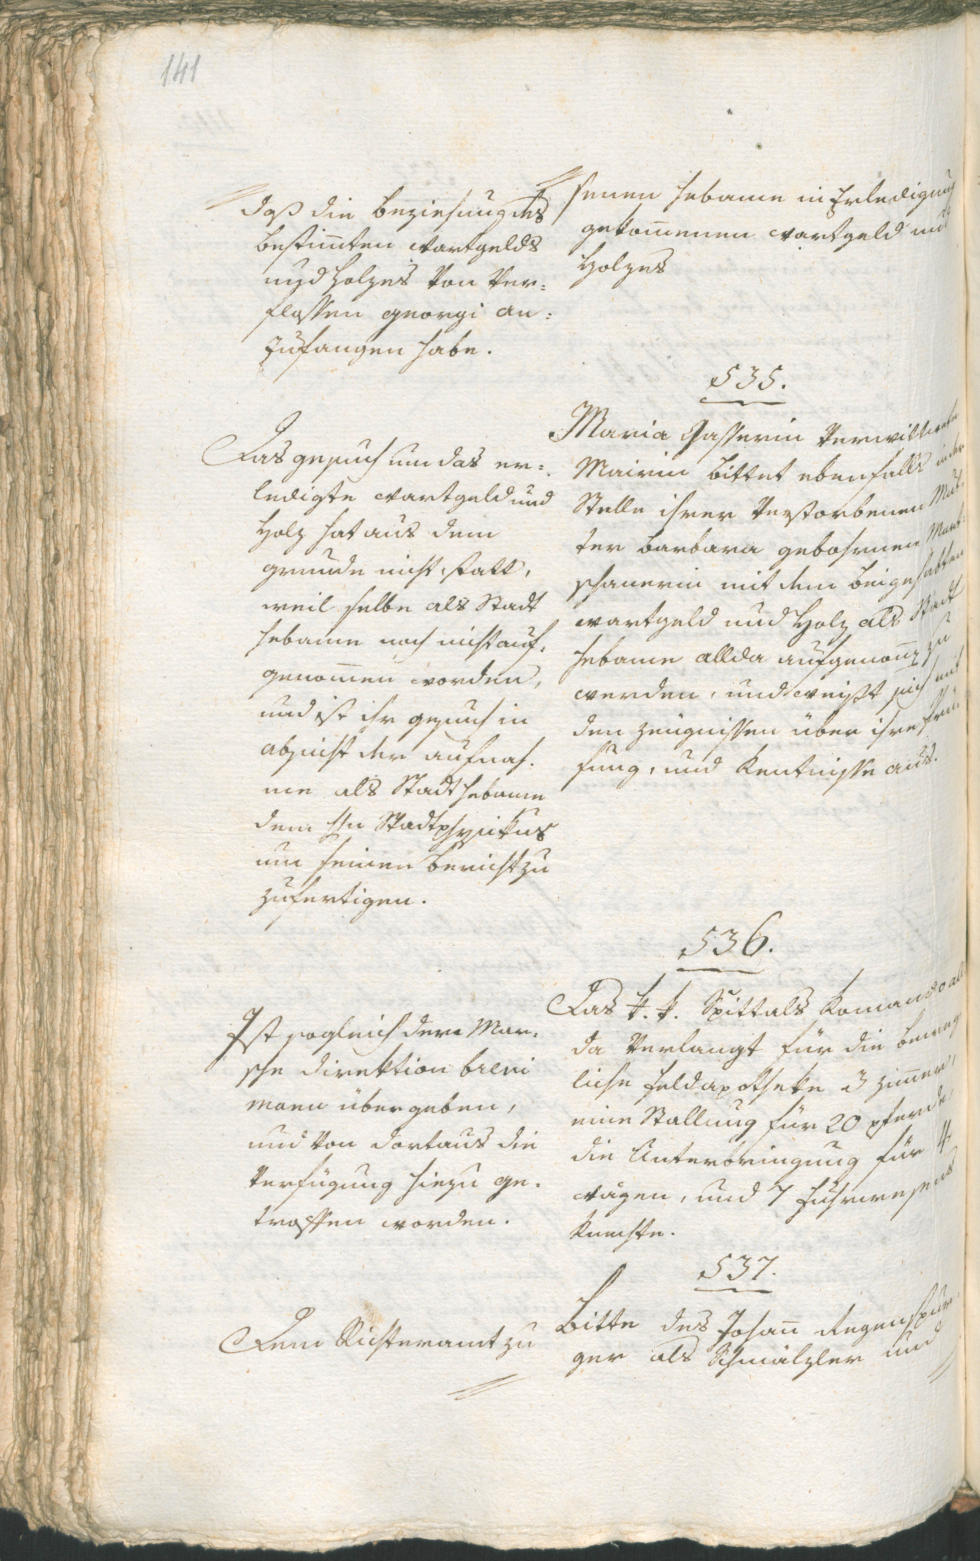 141
daß die Beziehung des
bestimten Wartgelds
und Holzes von ver-
flossen Georgi an-
zufangen habe.
Das Gesuch um das er-
ledigte Wartgeld und
Holz hat aus dem
Grunde nicht statt,
weil selbe als Stadt
hebame noch nicht auf-
genomen worden,
und ist ihr Gesuch in
Absicht der Aufnah-
me als Stadthebame
dem Hn Stadtphysikus
um seinen Bericht zu
zufertigen.
Ist sogleich der Mar-
sche Direktion brevi
manu übergeben,
und von dortaus die
Verfügung hiezu ge-
troffen worden.
Dem Richteramt zu
senen Hebame in Erledigung
gekommenen Wartgeld und
Holzes
535.
Maria Gasserin verwittwete
Mairin bittet ebenfalls in der
Stelle ihrer verstorbenen Mut-
ter Barbara gebohrnen
mit dem beigehabten
Wartgeld und Holz als Stadt
hebame allda aufgenomen zu
werden, und weißt sich mit
den Zeugnissen über ihre
und Kentnisse aus.
536.
Das k. k. Spittals Komando all
da verlangt für die beweg
liche Feldapotheke 3 Zimmer,
eine Stallung für 20 Pferde,
die Unterbringung für 4
Wägen, und 7 Fuhrwesens
Knechte.
537.
Bitte des Johan Regenspur
ger als Schmälzler und